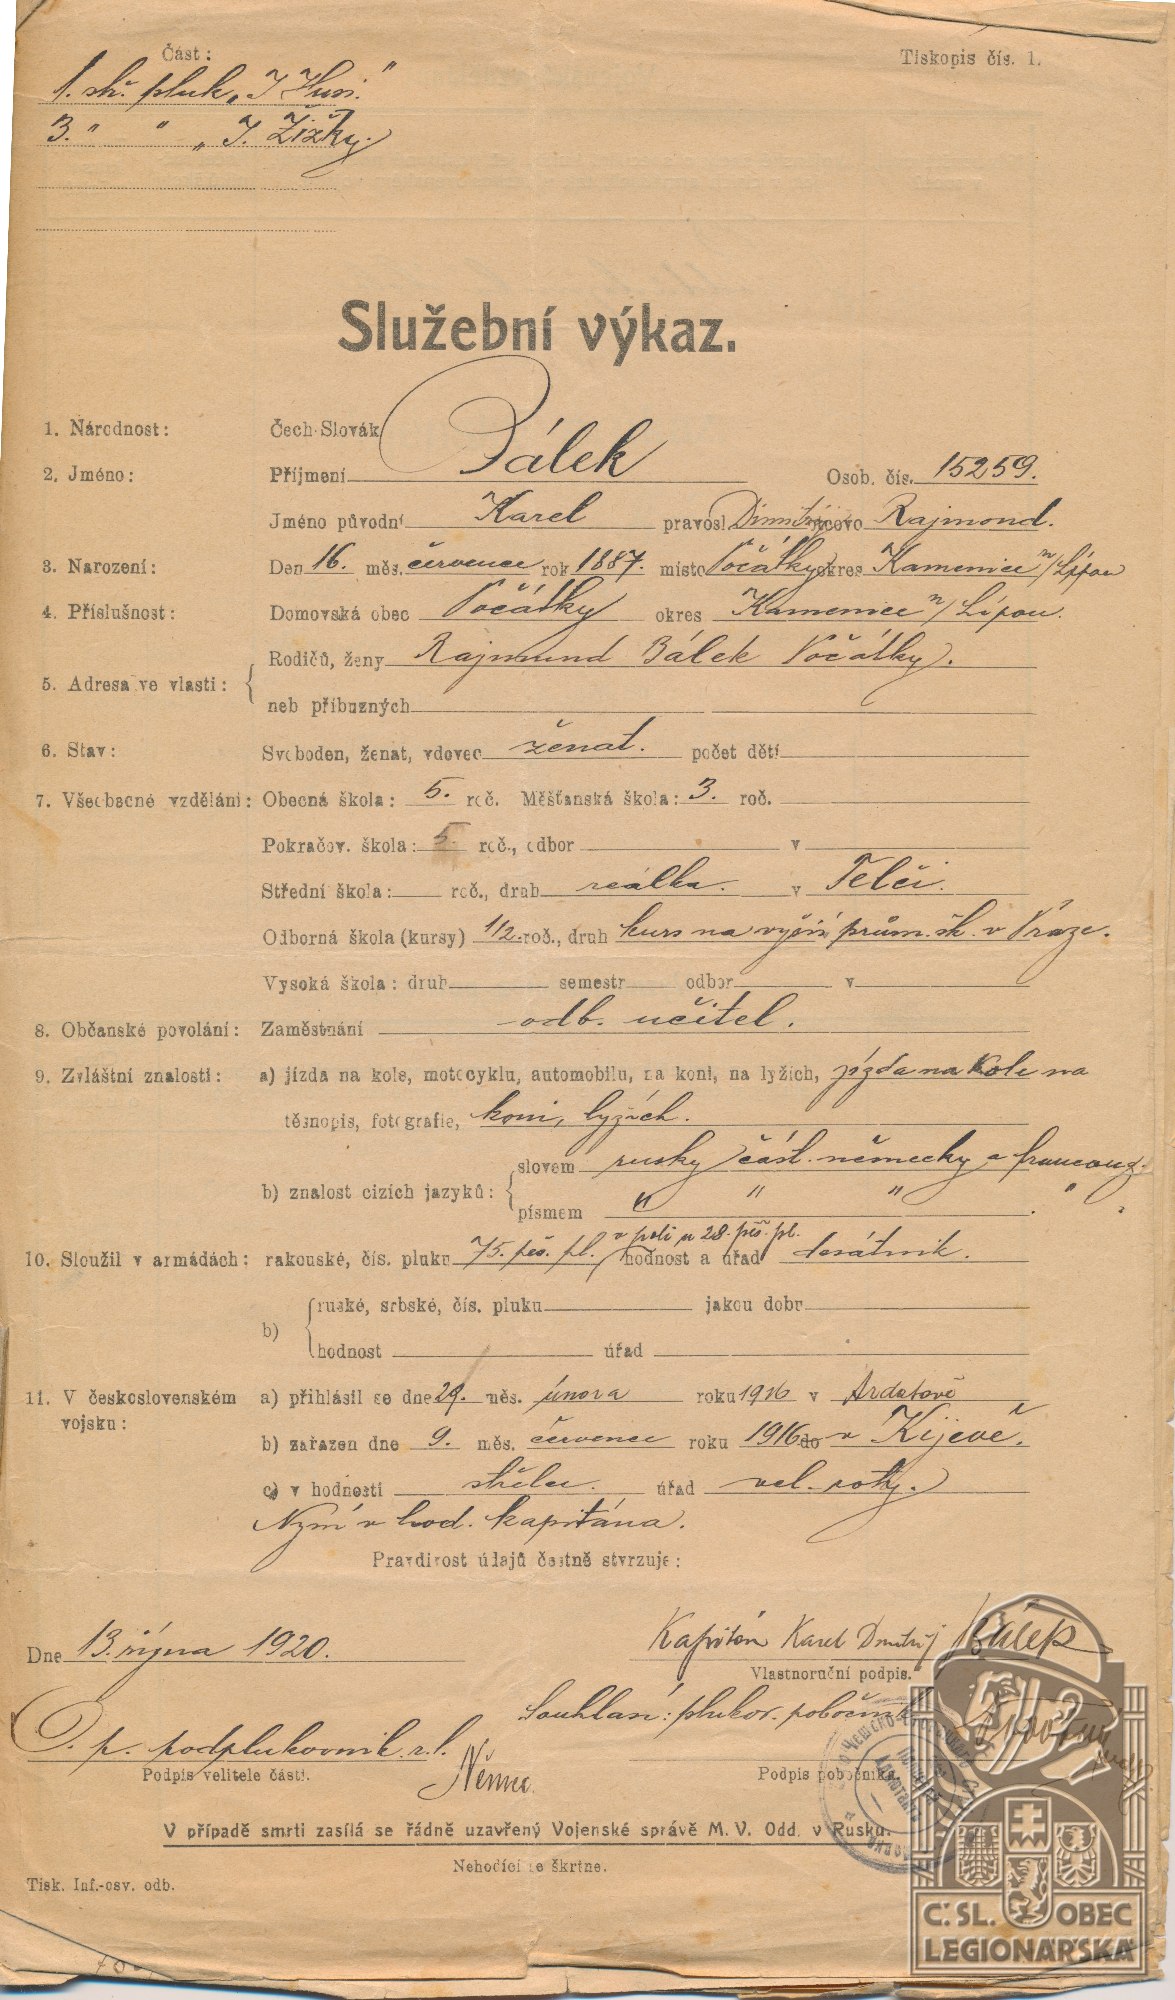 Část:
Tiskopis čís. 1.
1. stř. pluk „J. Husi"
3. " " „J. Žižky.
Služební výkaz.
1. Národnost: Čech-Slovák
2. Jméno: Příjmení Bálek Osob. čís. 15259.
Jméno původní Karel pravosl. Dimitrij otcovo Rajmond.
3. Narození: Den 16. měs. července rok 1887. místo Počátky okres Kamenice n/Lípou
4. Příslušnost: Domovská obec Počátky okres Kamenice n/Lípou.
5. Adresa ve vlasti: Rodičů, ženy Rajmund Bálek Počátky.
neb příbuzných
6. Stav: Svoboden, ženat, vdovec ženat. počet dětí
7. Všeobecné vzdělání: Obecná škola: 5. roč. Měšťanská škola: 3. roč.
Pokračov. škola: 5. roč., odbor v
Střední škola: roč., druh reálka. v Telči.
Odborná škola (kursy) 1/2 roč., druh kurs na vyšší prům. šk. v Praze.
Vysoká škola: druh semestr odbor v
8. Občanské povolání: Zaměstnání odb. učitel.
9. Zvláštní znalosti: a) jízda na kole, motocyklu, automobilu, na koni, na lyžích, jízda na kole na
těsnopis, fotografie, koni, lyžích.
b) znalost cizích jazyků: slovem rusky část. německy a francouz.
písmem " " " " "
10. Sloužil v armádách: rakouské, čís. pluku 75. peš. pl. v poli u 28. peš. pl. hodnost a úřad desátník.
b) ruské, srbské, čís. pluku jakou dobu
hodnost úřad
11. V československém vojsku: a) přihlásil se dne 29. měs. února roku 1916 v Ardatově
b) zařazen dne 9. měs. července roku 1916 do v Kijevě.
c) v hodnosti střelec. úřad vel. roty.
Nyní v hod. kapitána.
Pravdivost údajů čestně stvrzuje:
Dne 13. října 1920.
Kapitán Karel Dmitrij Bálek
Vlastnoruční podpis.
Souhlasí: plukov. pobočník
podplukovník r.l. Němec
Podpis velitele části.
Podpis pobočníka.
V případě smrti zasílá se řádně uzavřený Vojenské správě M. V. Odd. v Rusku.
Nehodící se škrtne.
Tisk. Inf.-osv. odb.
Č. SL. OBEC
LEGIONÁŘSKÁ